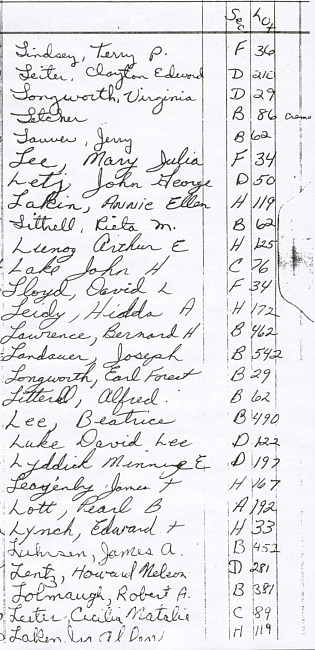 Sec Lot
Lindsey, Terry P. F 36
Leiter, Clayton Edward D 210
Longworth, Virginia D 29
Letcher B 86 cremo
Lauver, Jerry B 62
Lee, Mary Julia F 34
Letz, John George D 50
Lakin, Annie Ellen H 119
Littrell, Rieta M. B 62
Arthur E H 125
Lake John H C 76
Lloyd, David L F 34
Leidy, Hidda A H 172
Lawrence, Bernard H B 462
Landauer, Joseph B 542
Longworth, Earl Forest B 29
Litterel, Alfred. B 62
Lee, Beatrice B 490
Luke David Lee D 122
Lyddick Minnie E D 197
James F H 167
Lott, Pearl B A 192
Lynch, Edward F H 33
Luhrsen, James A. B 452
Lentz, Howard Nelson D 281
Lobmaugh, Robert A. B 381
Lester Cecilia Natalie C 89
Laken H 119